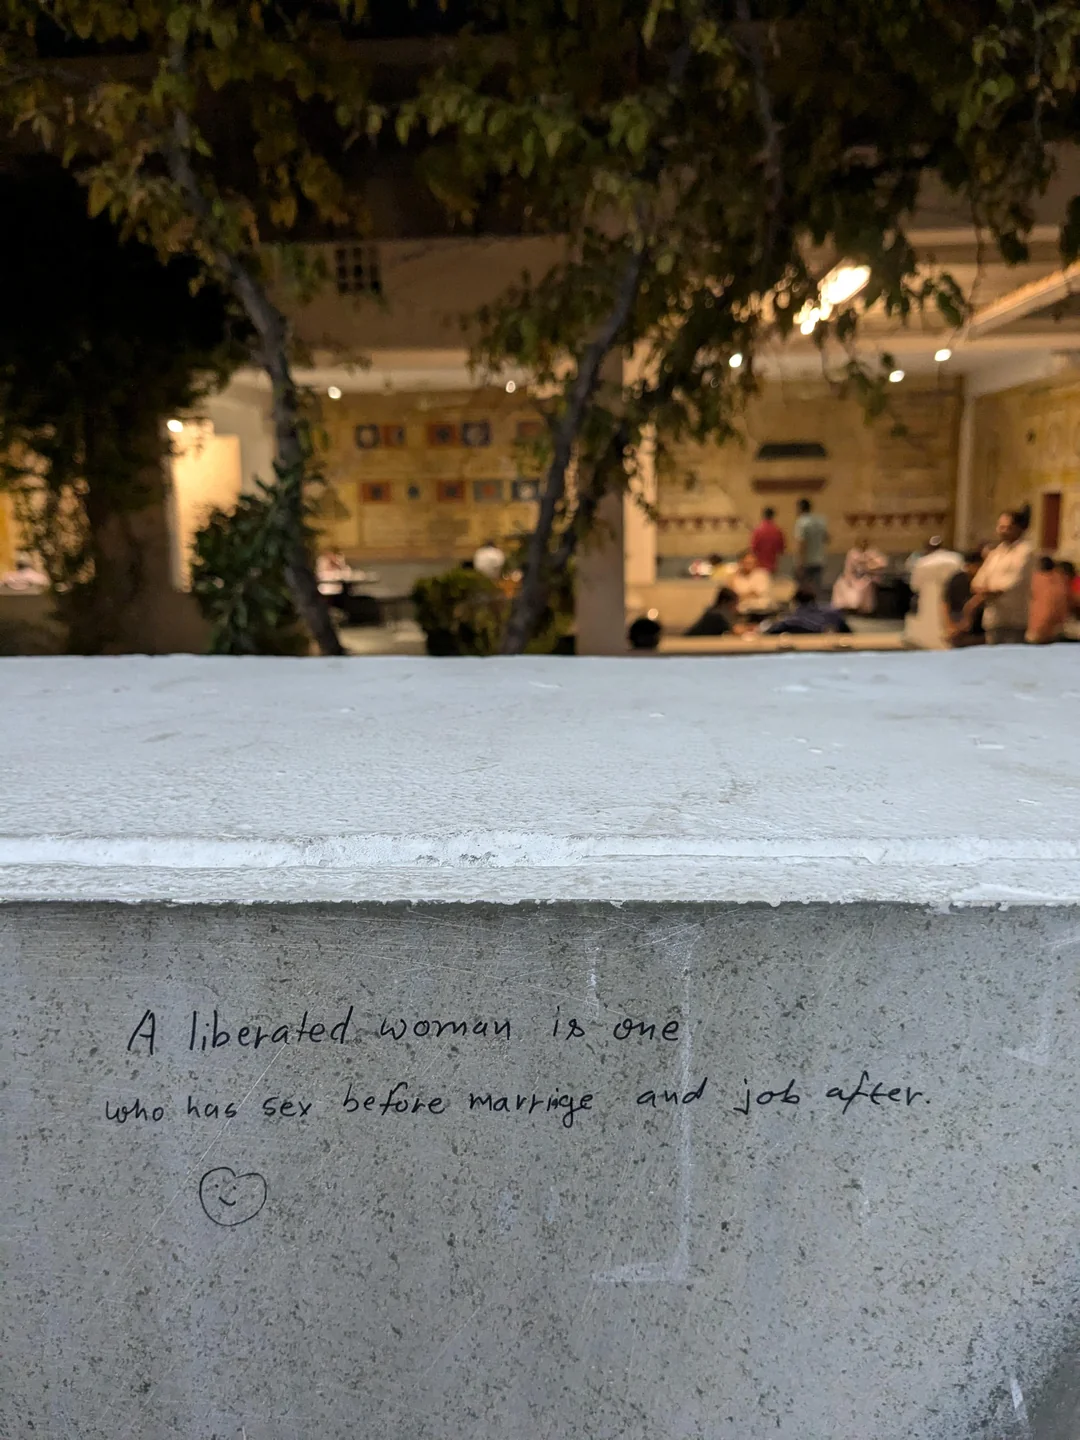 A liberated woman is one
who has sex before marriige and job after.